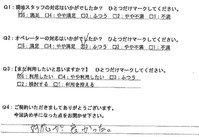 Q1：現地スタッフの対応はいかがでしたか？　ひとつだけマークしてください。
□5：満足　□4：やや満足　□3：ふつう　□2：やや不満　□1：不満
Q2：オペレーターの対応はいかがでしたか？　ひとつだけマークしてください。
□5：満足　□4：やや満足　□3：ふつう　□2：やや不満　□1：不満
Q3：【また利用したいと思いますか？　ひとつだけマークしてください。
□5：利用したい　□4：やや利用したい　□3：ふつう
□2：検討する　□1：利用を控える
Q4：ご契約いただきましてありがとうございます。
今回決め手になった点をお聞かせ下さい。
対応が良かった。